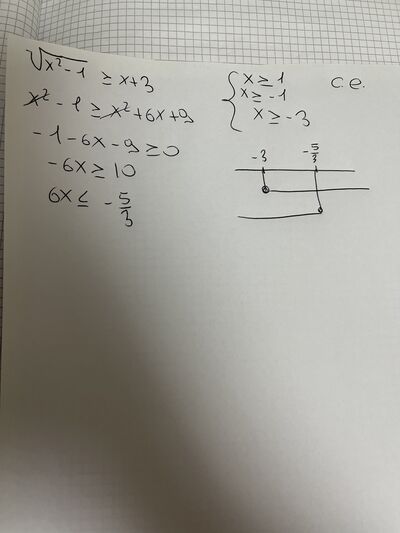 √x²-1 ≥ x+3
x² - 1 ≥ x² + 6x + 9
- 1 - 6x - 9 ≥ 0
- 6x ≥ 10
6x ≤ - 5/3
{ x ≥ 1 c.e.
x ≥ -1
x ≥ -3
-3 -5/3